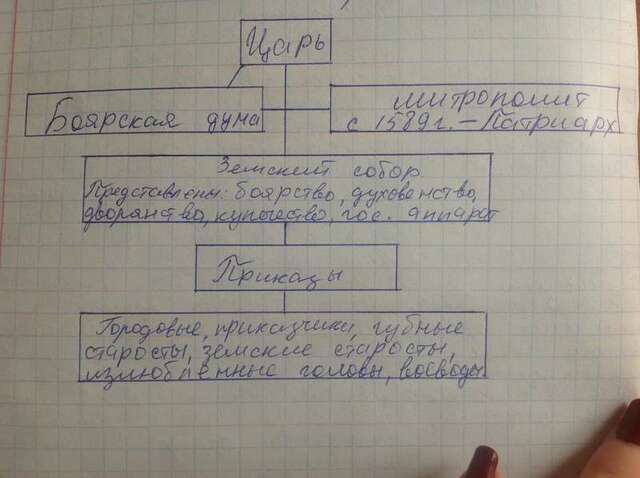 Царь
Боярская дума
митрополит
с 1589г. – Патриарх
Земский собор
Представлены: боярство, духовенство,
дворянство, купечество, гос. аппарат
Приказы
Городовые, приказчики, губные
старосты, земские старосты,
излюбленные головы, воеводы